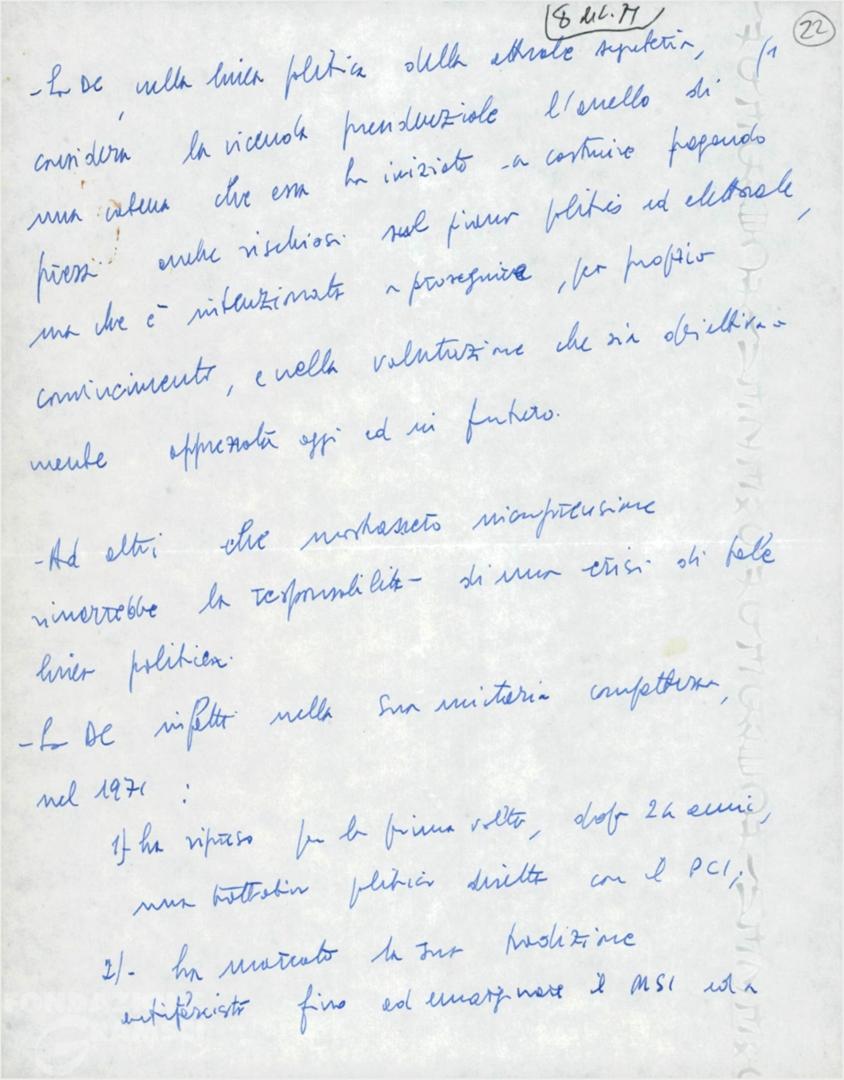 8 dic. 71
22
- La DC, nella linea politica della attuale segreteria, (1
considera la vicenda presidenziale l'anello di
una catena che essa ha iniziato a costruire pagando
prezzi anche rischiosi sul piano politico ed elettorale,
ma che è intenzionata a proseguire, per proprio
convincimento, e nella valutazione che sia obiettiva-
mente apprezzata oggi ed in futuro.
- Ad altri che mostrassero incomprensione
rimarrebbe la responsabilità di una crisi di tale
linea politica.
- La DC infatti nella sua unitaria compattezza,
nel 1971 :
1) ha ripreso per la prima volta, dopo 24 anni,
una trattativa politica diretta con il PCI;
2) - ha marcato la sua tradizione
antifascista fino ad emarginare il MSI ed a